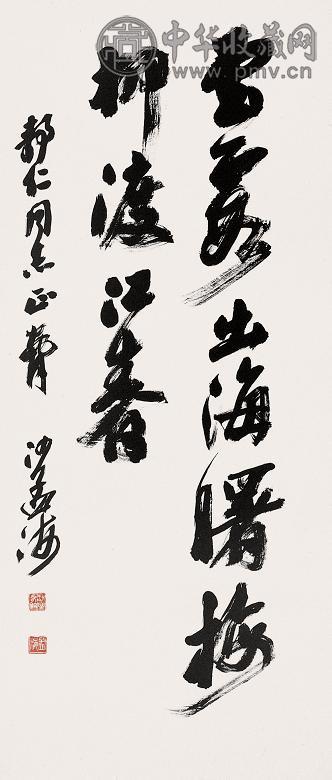 中华收藏网
www.pmv.cn
云霞出海曙梅
柳渡江春
静仁同志正腕
沙孟海